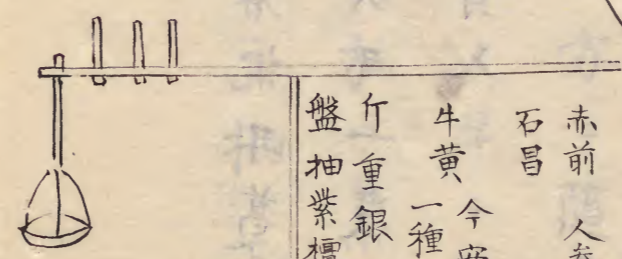 赤前 人参
石昌
牛黄 今安
一種
斤重銀
盤抽紫檀